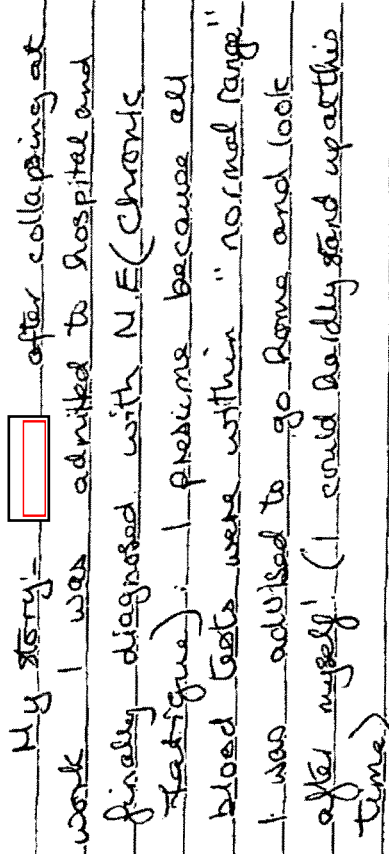 My story:- after collapsing at
work I was admitted to hospital and
finally diagnosed with M.E (Chronic
Fatigue). I presume because all
blood tests were within "normal range"
I was advised to go home and look
after myself! (I could hardly stand up at this
time)